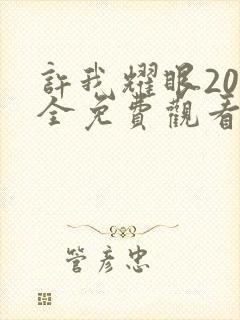 許我耀眼20
全免費觀看
管彥忠